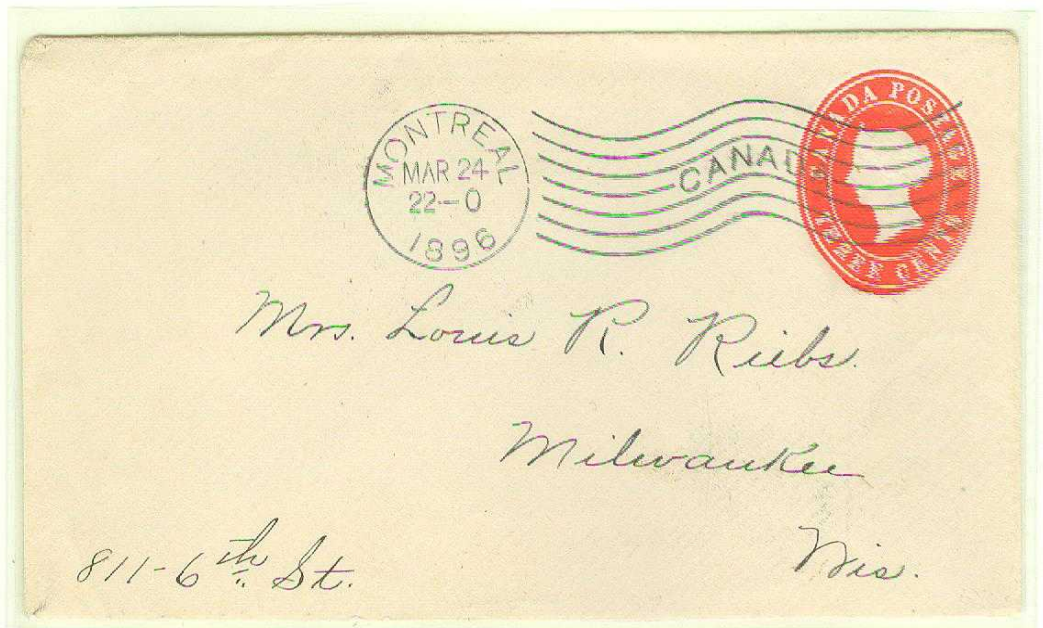 MONTREAL
MAR 24
22-0
1896
CANADA
CANADA POSTAGE
THREE CENTS
Mrs. Louis R. Riebs.
Milwaukee
811-6th St.
Wis.